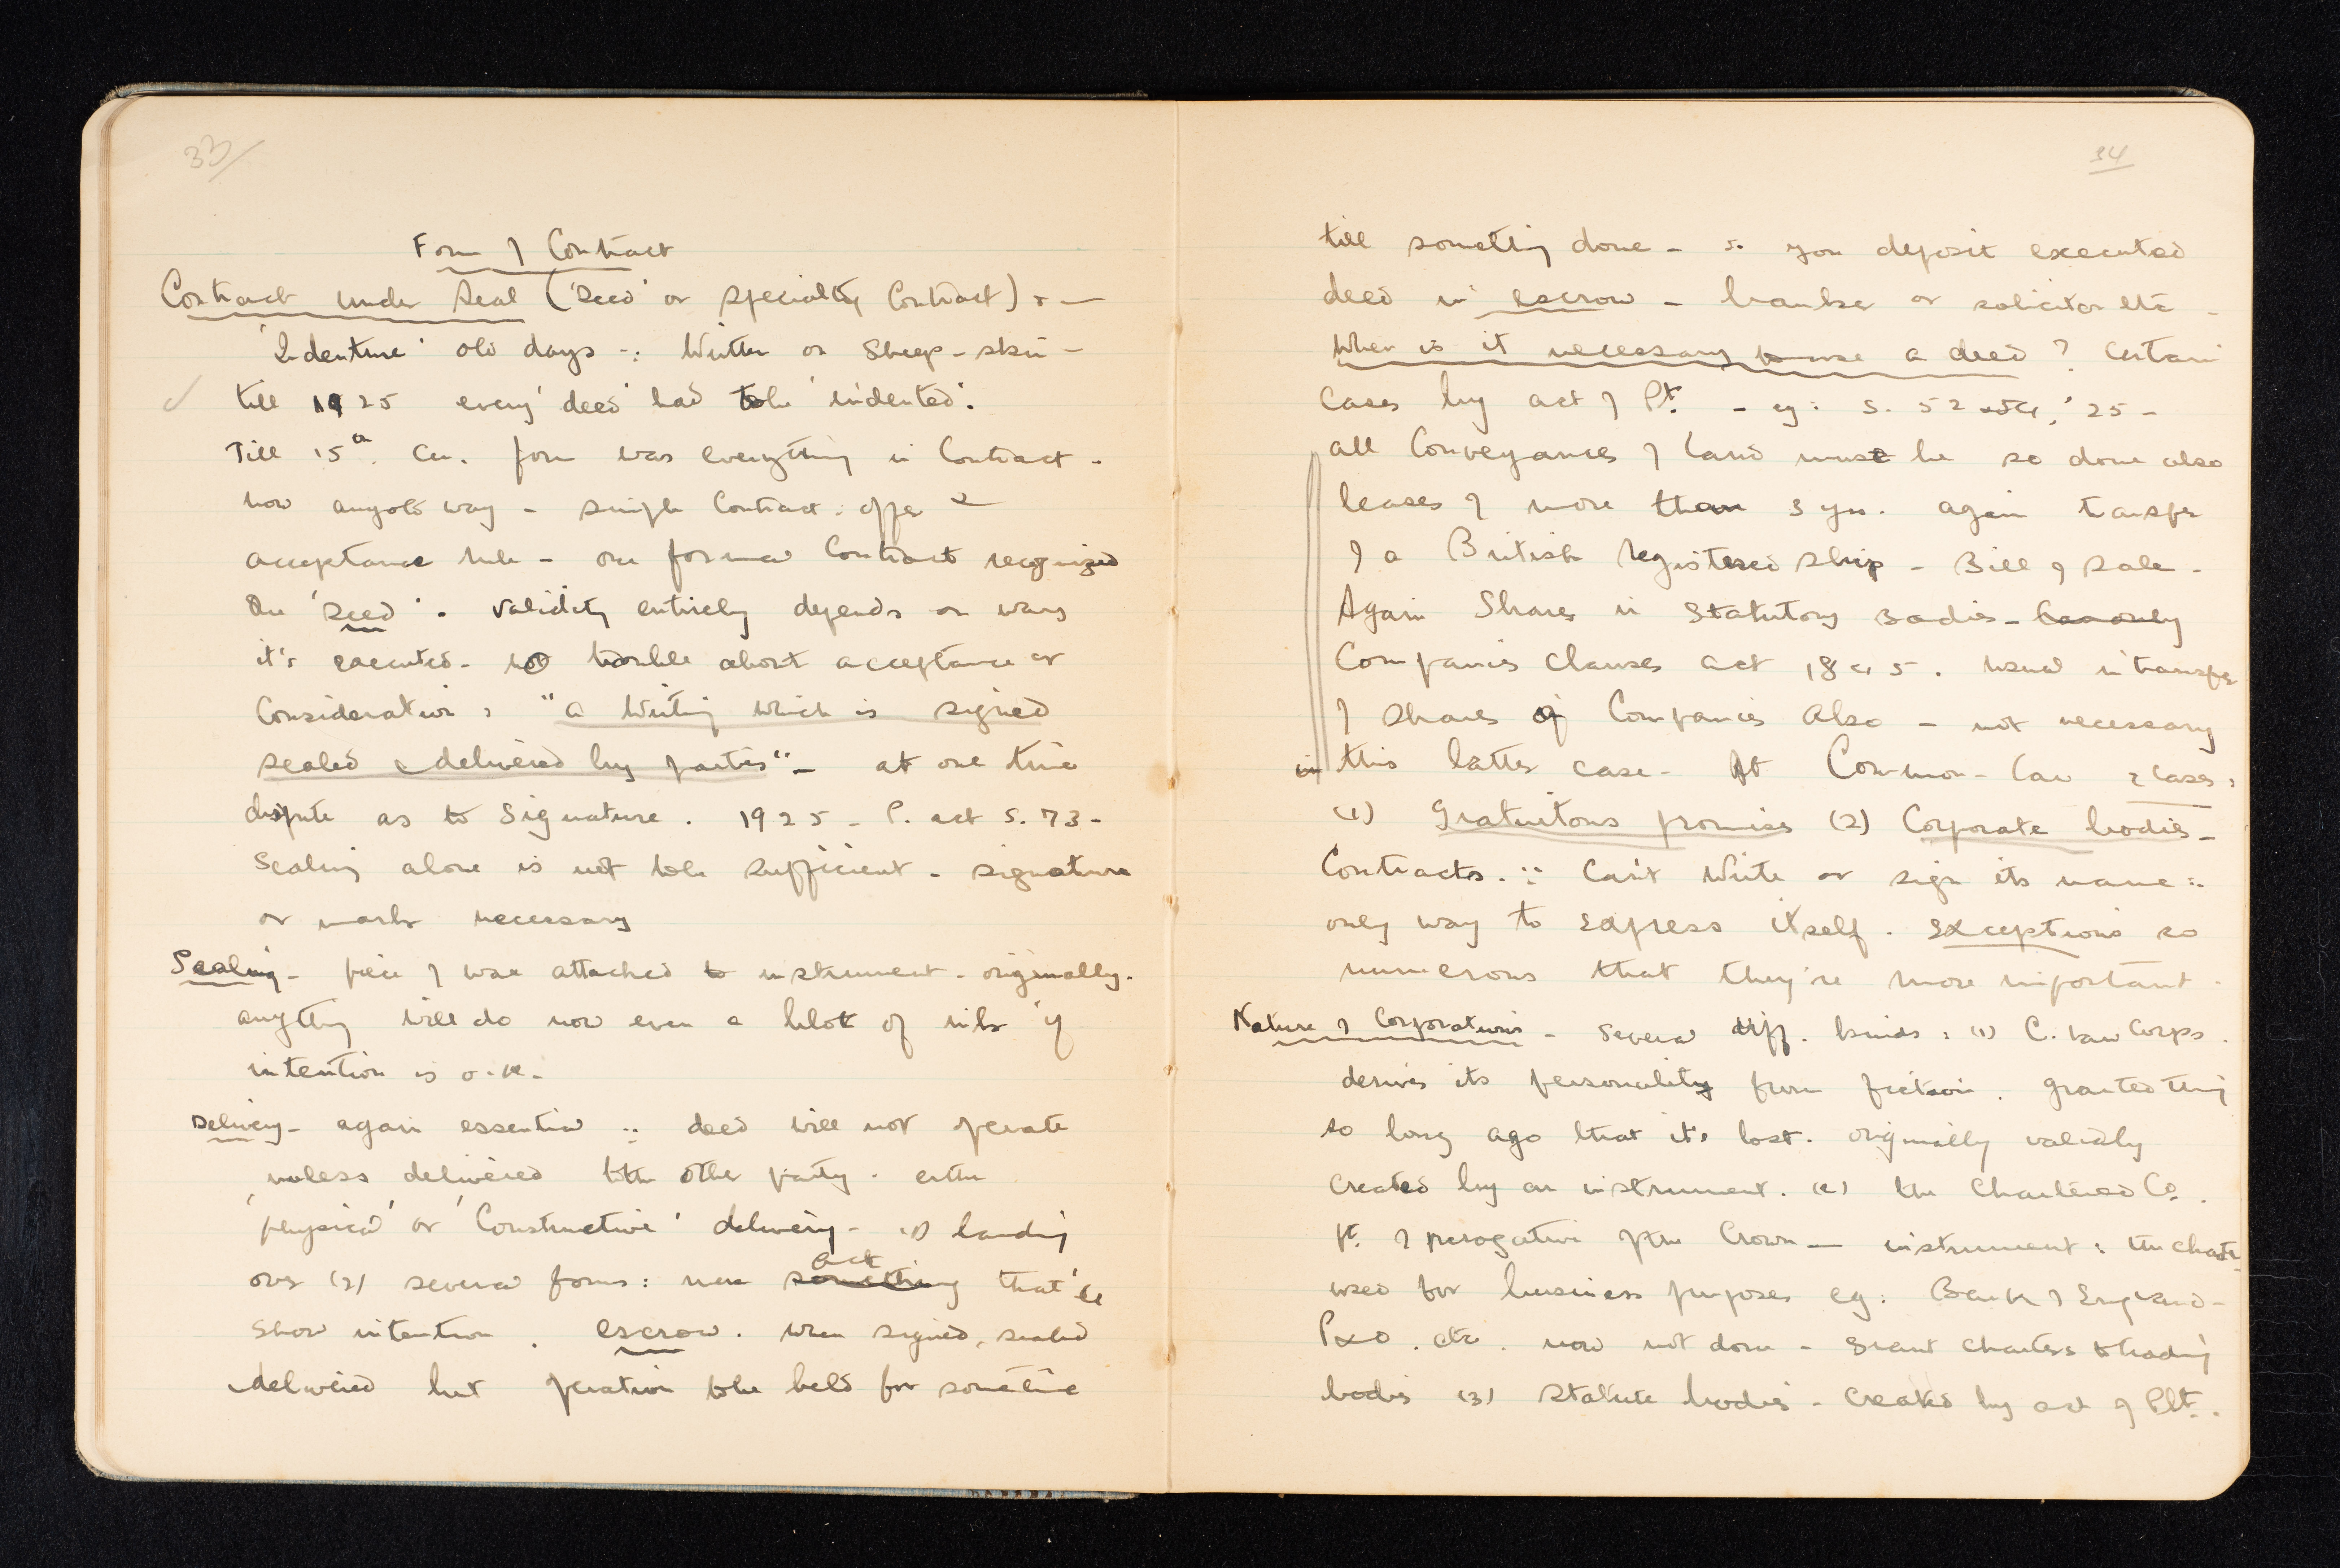 33/
Form of Contract
Contract under Seal ('Deed' or Specialty Contract) : —
'Indenture' old days -: Written on Sheep-skin -
till 1925 every 'deed' had to be 'indented'.
Till 15th Cen. form was everything in Contract -
now any old way - simple Contract: offer &
acceptance rule - one formal Contract recognized
the 'Deed'. validity entirely depends on way
it's executed - not trouble about acceptance or
Consideration: "a Writing which is signed
sealed & delivered by parties" - at one time
dispute as to Signature. 1925 - P. act S. 73 -
Sealing alone is not to be sufficient - signature
or mark necessary
Sealing - piece of wax attached to instrument - originally.
anything will do now even a blot of ink if
intention is o.k.
Delivery - again essential ∵ deed will not operate
unless delivered to the other party. either
'physical' or 'Constructive' delivery - (1) handing
over (2) several forms: mere something act that'll
show intention. escrow. when signed, sealed
& delivered but operation to be held for sometime
34
till something done - so you deposit executed
deed in escrow - banker or solicitor etc -
When is it necessary to use a deed? Certain
cases by act of Pt. - eg: S. 52 '25 -
all Conveyances of land must be so done also
leases of more than 3 yrs. again transfer
of a British registered ship - Bill of Sale -
Again Shares in Statutory Bodies -
Companies Clauses act 1845. usual in transfer
of shares of Companies also - not necessary
in this latter case - At Common-law 2 cases:
(1) Gratuitous promises (2) Corporate bodies -
Contracts. ∵ Can't Write or sign its name ∴
only way to express itself. Exceptions so
numerous that they're more important.
Nature of Corporations - several diff. kinds: (1) C. Law Corps.
derives its personality from fiction. granted thing
so long ago that it's lost. originally validly
created by an instrument. (2) the Chartered Co.
pt. of prerogative of the Crown — instrument: the charter
used for business purposes eg: Bank of England -
P&O. etc. now not done - grant charters to trading
bodies (3) Statute bodies - created by act of Plt.